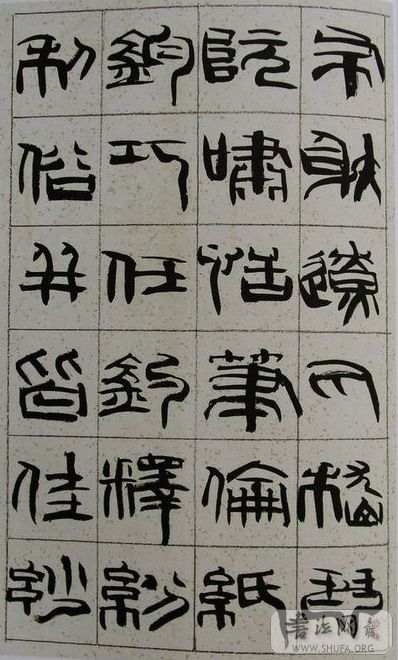 布射遼丸嵇琴
阮嘯恬筆倫紙
鈞巧任釣釋紛
利俗并皆佳妙
書法网
WWW.SHUFA.ORG